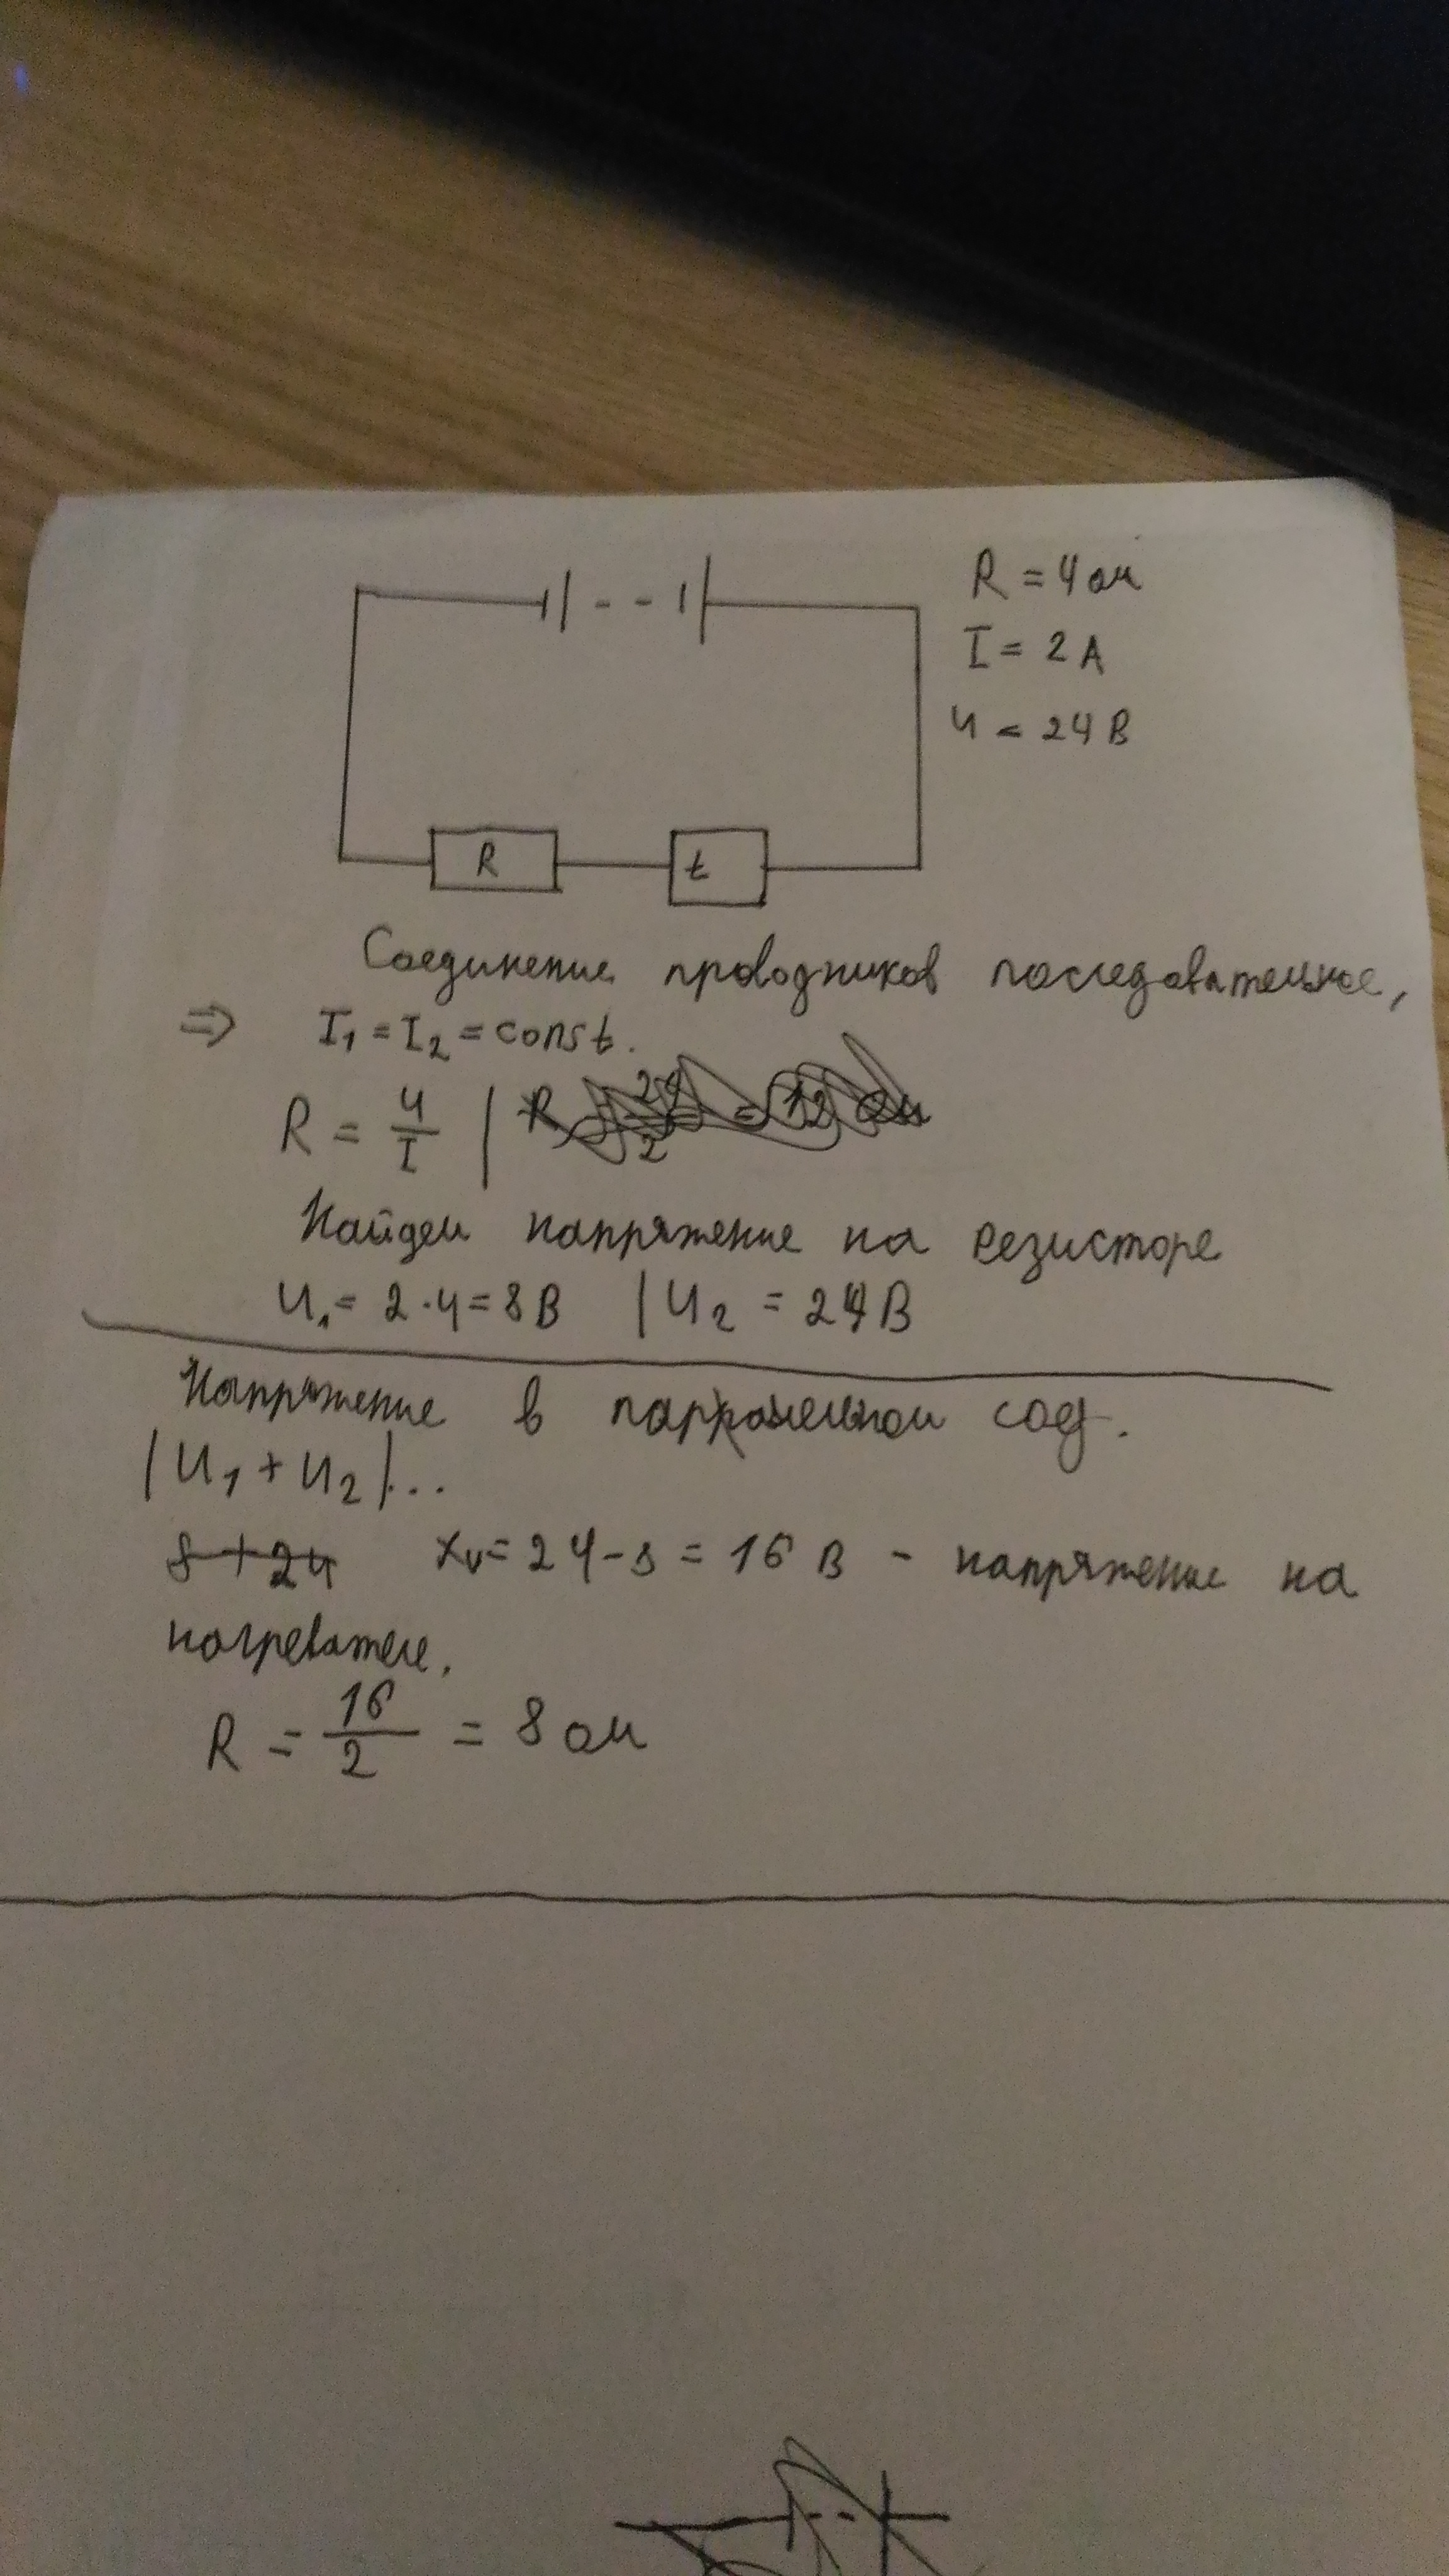 R = 4 ом
I = 2 А
U = 24 В
R
t
Соединение проводников последовательное,
⇒ I₁ = I₂ = const.
R = U/I | R = 24/2 = 12 ом
Найдем напряжение на резисторе
U₁ = 2 · 4 = 8 В | U₂ = 24 В
Напряжение в параллельном соед.
|U₁ + U₂|...
8 + 24 Xᵥ = 24 - 8 = 16 В - напряжение на
нагревателе.
R = 16/2 = 8 ом